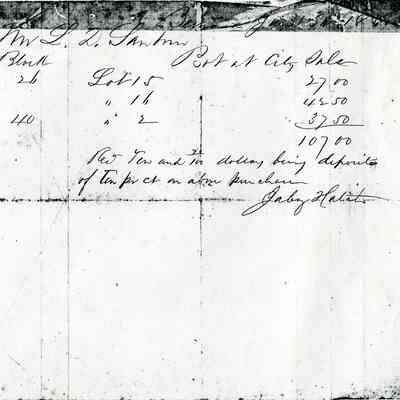 Mr L. D.
Block Bot at City Sale
26 Lot 15 27 00
" 16 42 50
40 " 2 37 50
107 00
Rec'd Ten and 70/100 dollars being deposite
of ten pr ct on above purchase